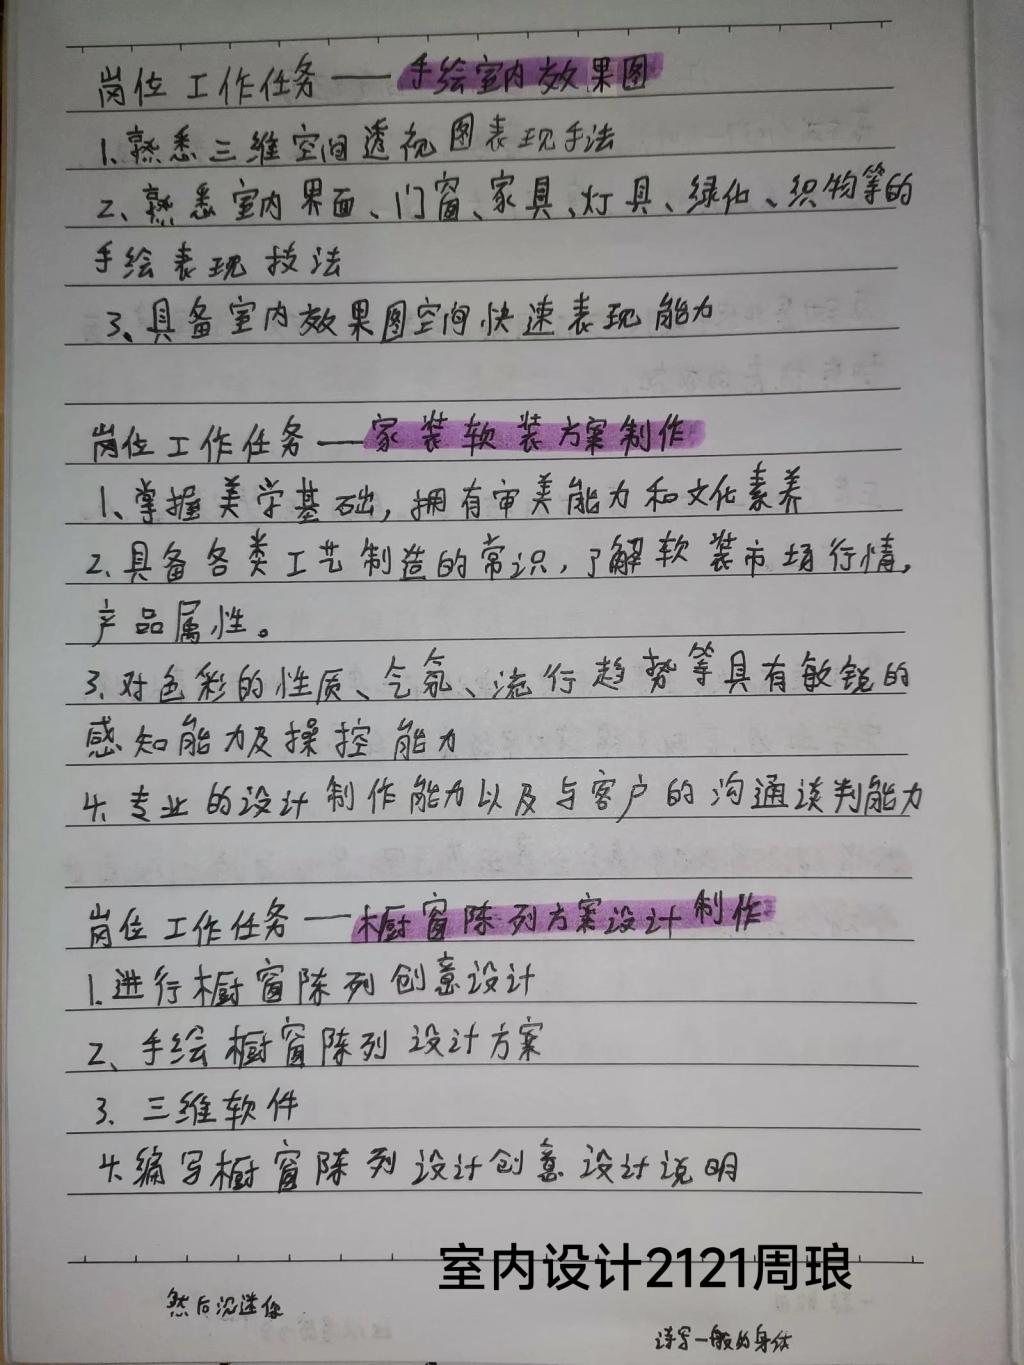 岗位工作任务——手绘室内效果图
1、熟悉三维空间透视图表现手法
2、熟悉室内界面、门窗、家具、灯具、绿化、织物等的
手绘表现技法
3、具备室内效果图空间快速表现能力
岗位工作任务——家装软装方案制作
1、掌握美学基础,拥有审美能力和文化素养
2、具备各类工艺制造的常识,了解软装市场行情,
产品属性。
3、对色彩的性质、气氛、流行趋势等具有敏锐的
感知能力及操控能力
4、专业的设计制作能力以及与客户的沟通谈判能力
岗位工作任务——橱窗陈列方案设计制作
1.进行橱窗陈列创意设计
2、手绘橱窗陈列设计方案
3、三维软件
4、编写橱窗陈列设计创意设计说明
室内设计2121周琅
然后沉迷你
诗写一般的身体